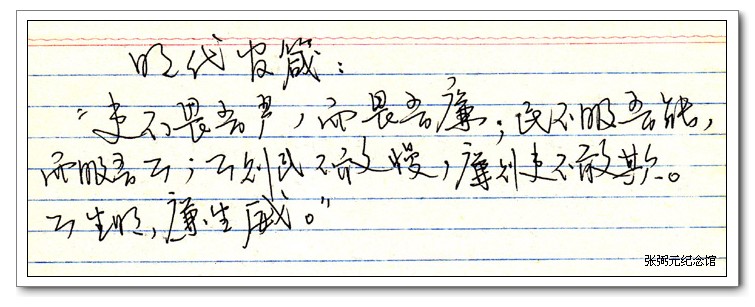 明代官箴:
“吏不畏吾严,而畏吾廉;民不服吾能,
而服吾公;公则民不敢慢,廉则吏不敢欺。
公生明,廉生威。”
张弼元纪念馆